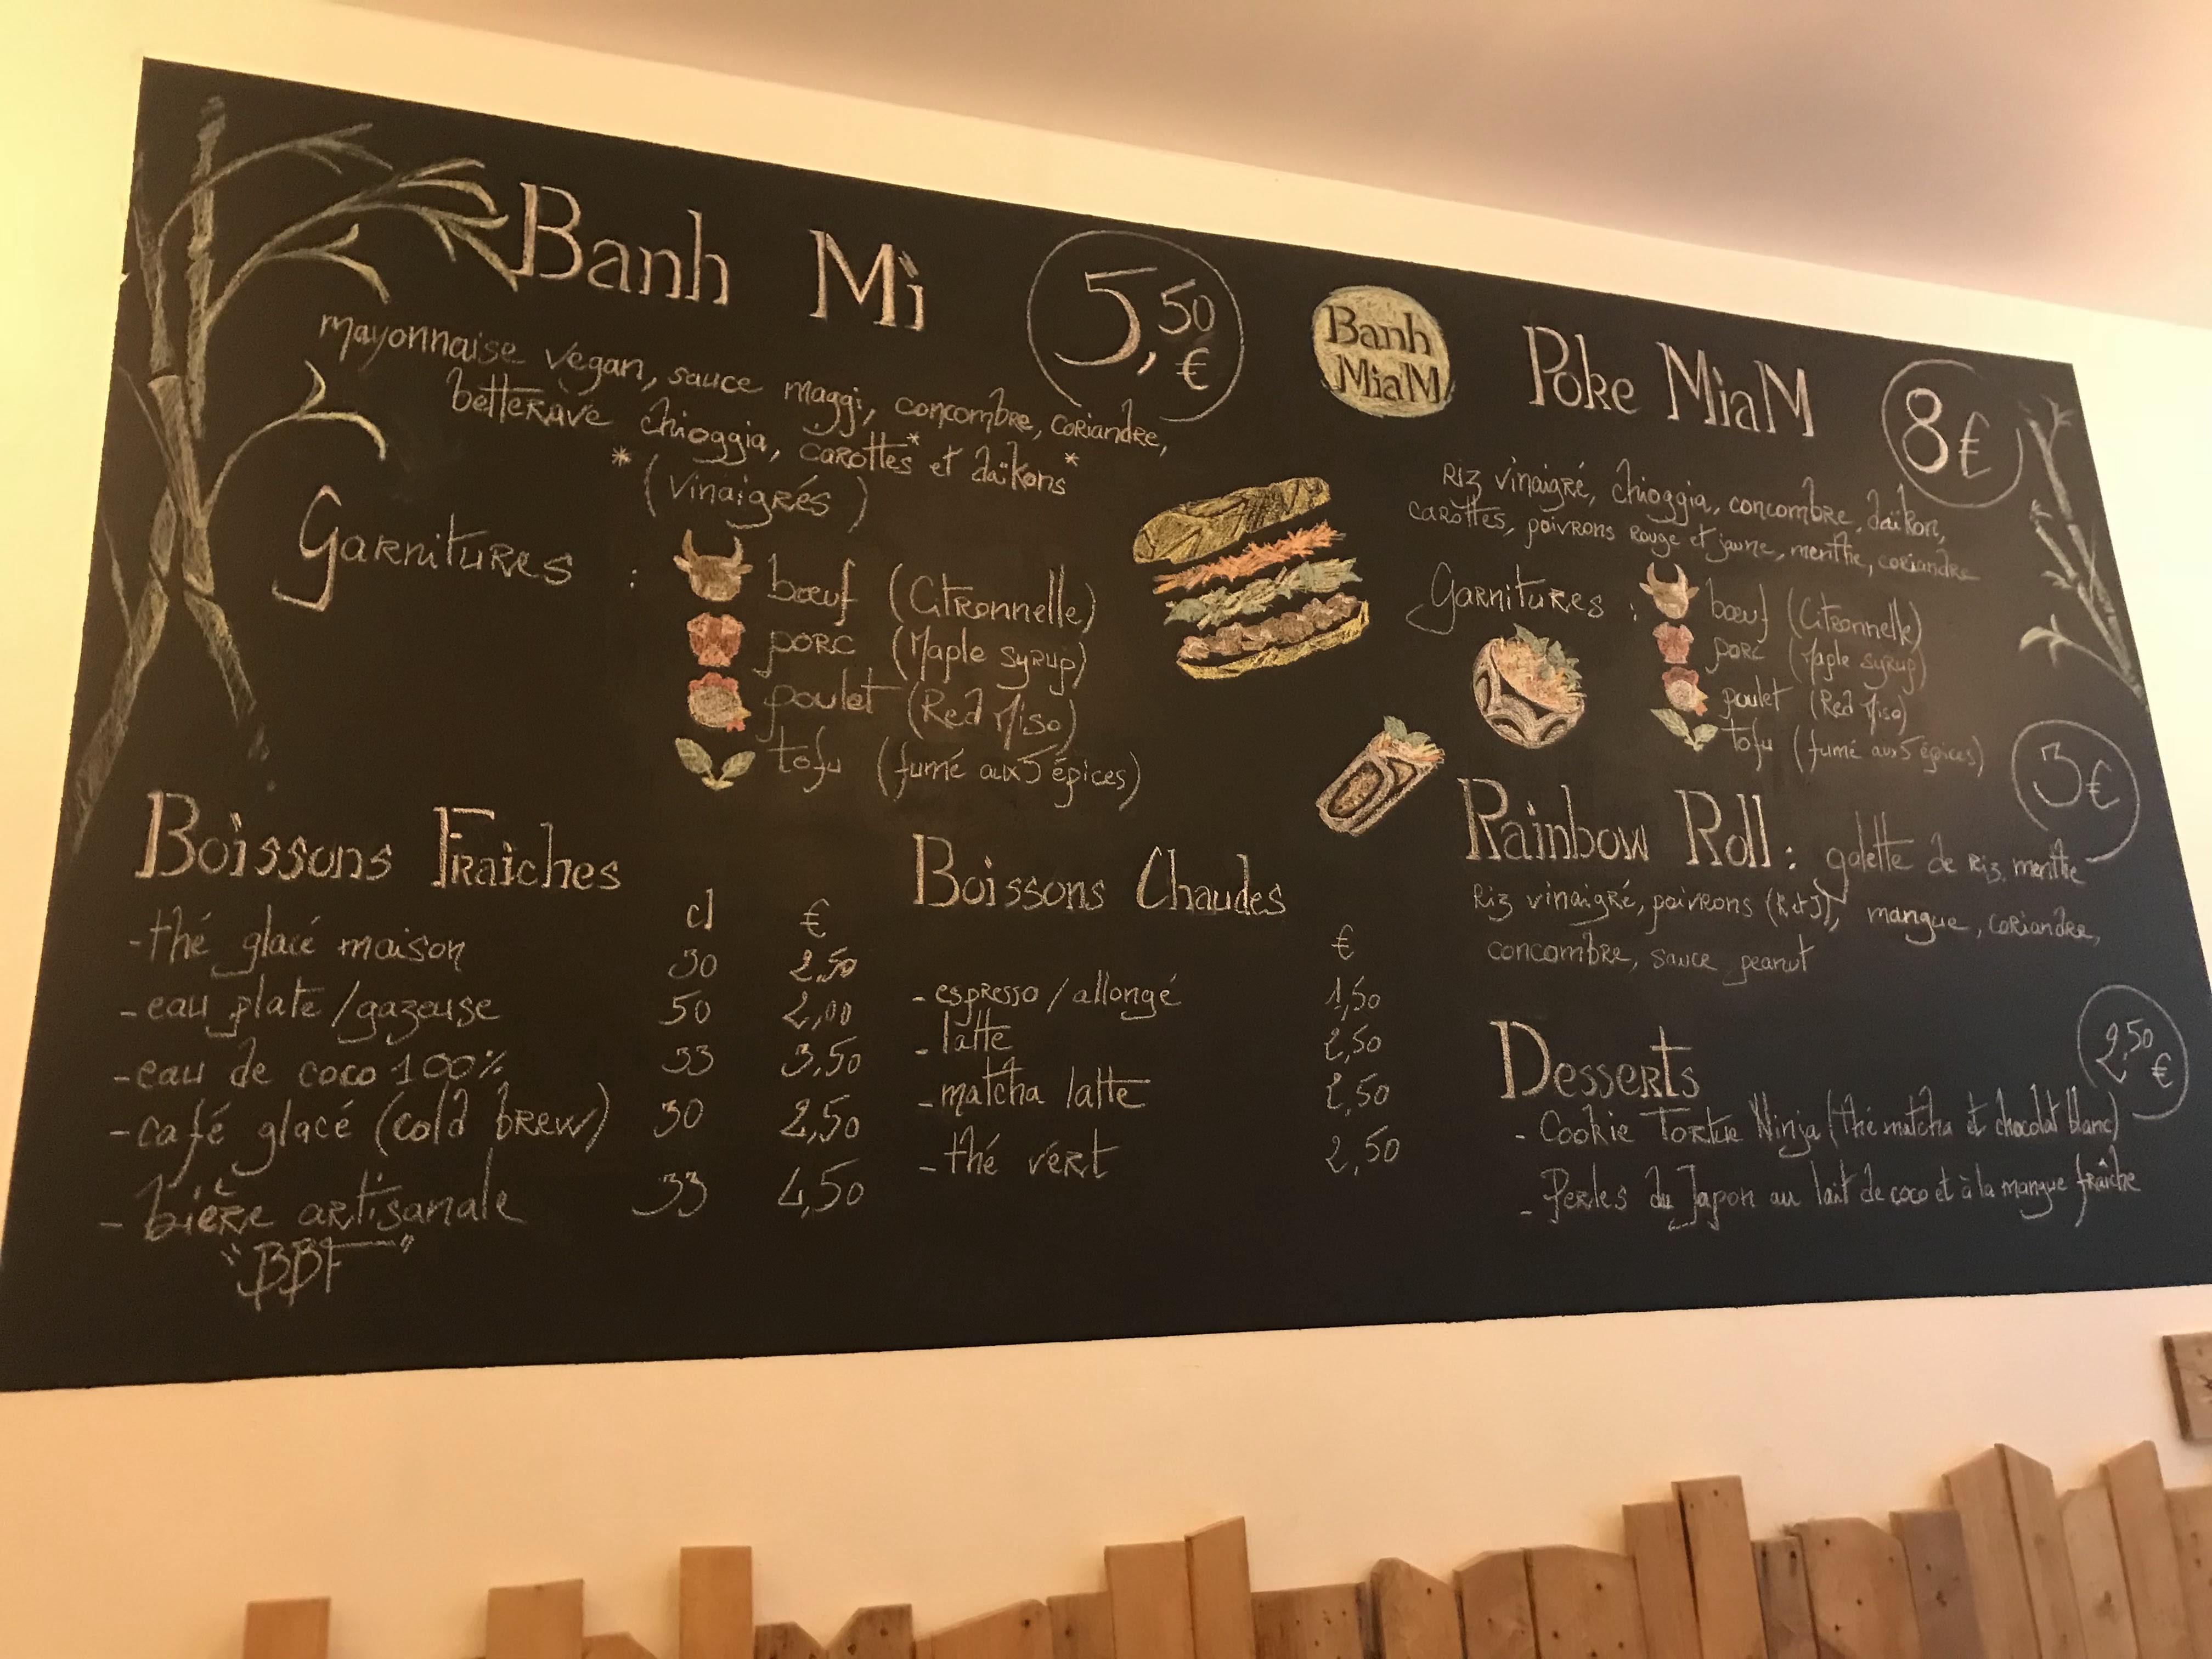 Banh Mì
5,50 €
mayonnaise vegan, sauce maggi, concombre, coriandre,
betterave chioggia, carottes* et daïkons*
*(Vinaigrés)
Garnitures :
bœuf (Citronnelle)
porc (Maple syrup)
poulet (Red Miso)
tofu (fumé aux 5 épices)
Banh
MiaM
Poke MiaM
8€
Riz vinaigré, chioggia, concombre, daïkon,
carottes, poivrons rouge et jaune, menthe, coriandre
Garnitures :
bœuf (Citronnelle)
porc (Maple syrup)
poulet (Red Miso)
tofu (fumé aux 5 épices)
Boissons Fraiches
cl €
-thé glacé maison 30 2,50
-eau plate/gazeuse 50 2,00
-eau de coco 100% 33 3,50
-café glacé (cold brew) 30 2,50
-bière artisanale 33 4,50
"BBF"
Boissons Chaudes
€
-espresso/allongé 1,50
-latte 2,50
-matcha latte 2,50
-thé vert 2,50
Rainbow Roll : galette de riz, menthe
riz vinaigré, poivrons (R et J), mangue, coriandre,
concombre, sauce peanut
Desserts
2,50 €
- Cookie Tortue Ninja (thé matcha et chocolat blanc)
- Perles du Japon au lait de coco et à la mangue fraîche